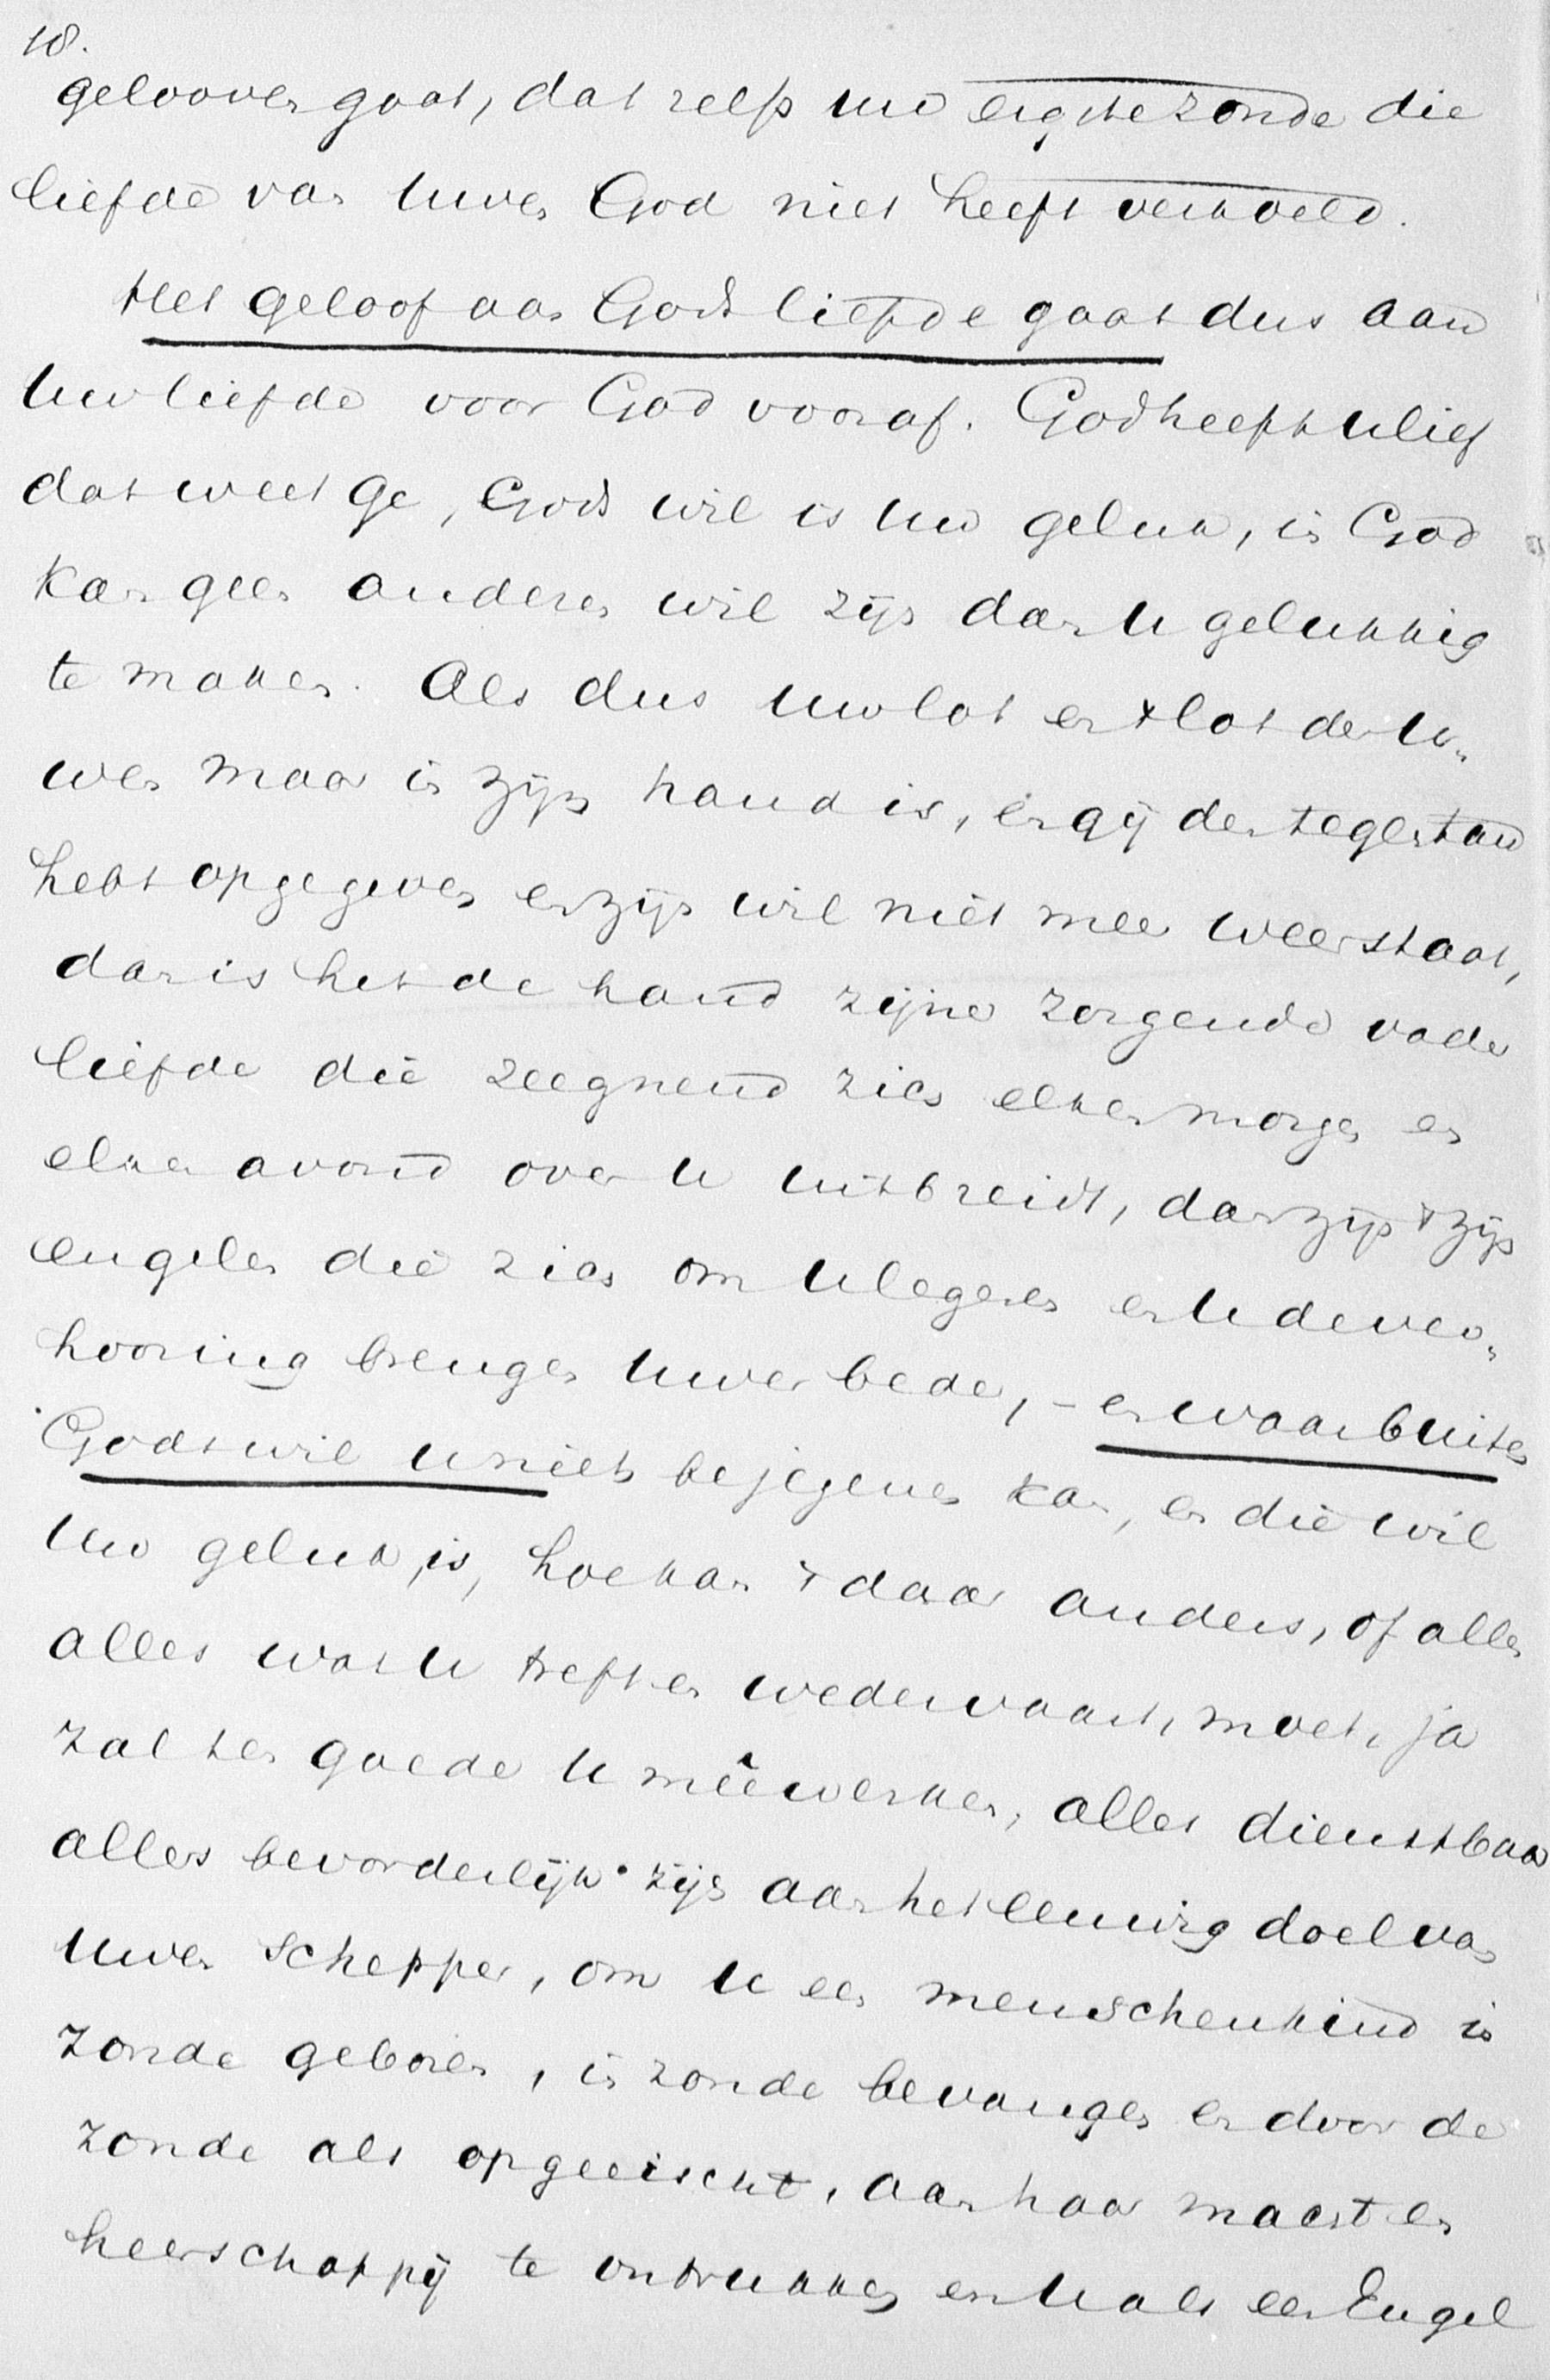 18.
gelooven gaat, dat zelfs uw ergste zonde die
liefde van uwen God niet heeft verkoeld.
Het geloof aan Gods liefde gaat dus aan
uw liefde voor God vooraf. God heeft u lief
dat weet ge, Gods wil is uw geluk, in God
kan geen anderen wil zijn dan u gelukkig
te maken. Als dus uw lot en 't lot der u-
wen maar in zijn hand is, en gij den tegenstand
hebt opgegeven en zijn wil niet meer weerstaat,
dan is het de hand zijner zorgende vader
liefde die zeegnend zich elken morgen en
elken avond over u uitbreidt, dan zijn 't zijn
engelen die zich om u legeren en u de ver-
hooring brengen uwer bede, - en waar buiten
Gods wil u niets bejegenen kan, en die wil
uw geluk is, hoe kan 't dan anders, of alles
alles wat u treft en wedervaart, moet, ja
zal ten goede u meêwerken, alles dienstbaar
alles bevorderlijk zijn aan het eeuwig doel van
uwen Schepper, om u een menschenkind in
zonde geboren, in zonde bevangen en door de
zonde als opgeeischt, aan haar macht en
heerschappij te ontrukken en u als een Engel